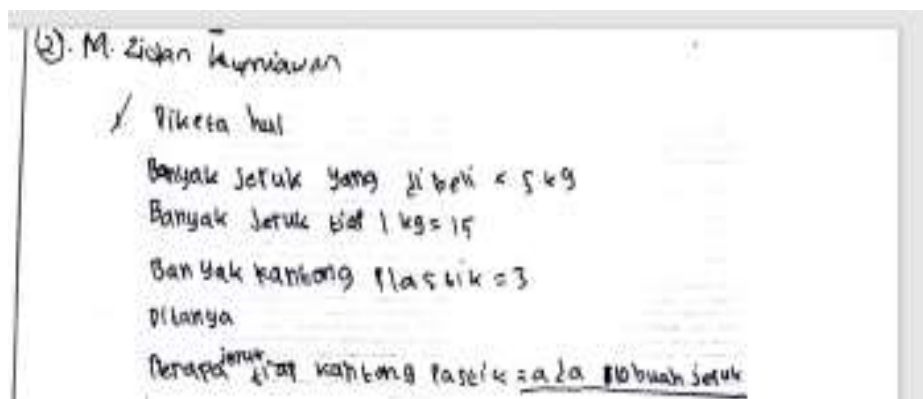 (2). M. Zidan Kurniawan
1 Diketa hui
Banyak Jeruk yang di beli = 5 kg
Banyak Jeruk tiap 1 kg = 15
Banyak kantong Plastik = 3
Ditanya
Berapa jeruk tiap kantong Pastik = ada buah Jeruk